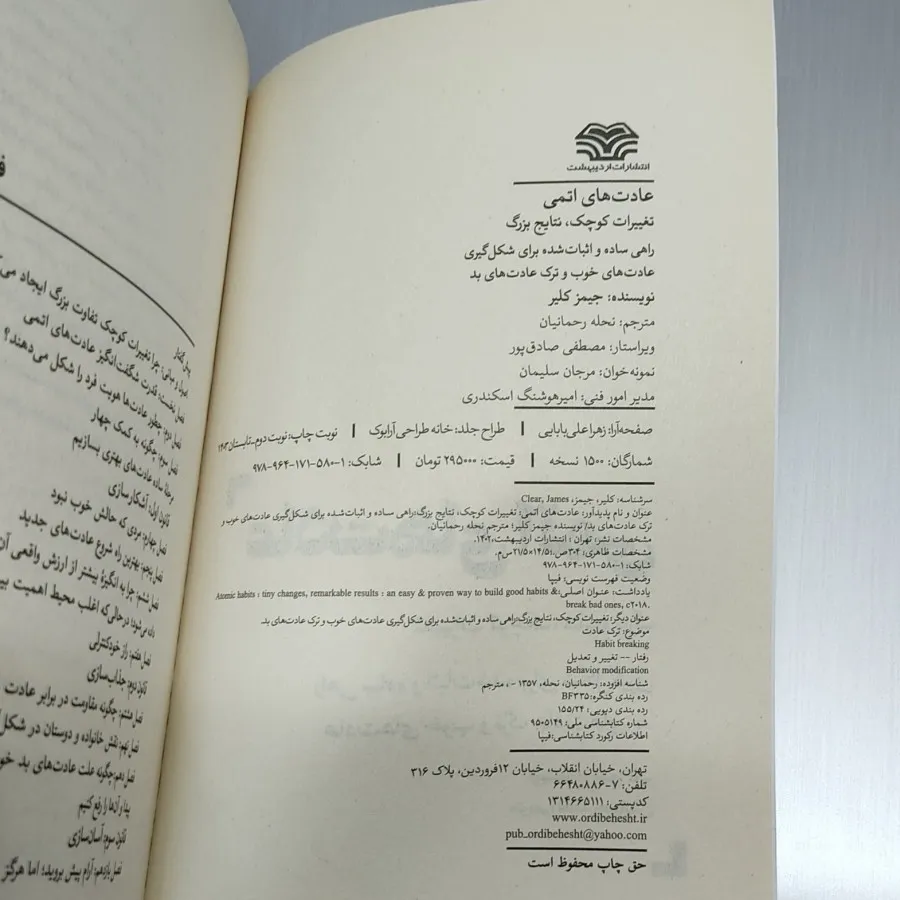 انتشارات اردیبهشت
عادت‌های اتمی
تغییرات کوچک، نتایج بزرگ
راهی ساده و اثبات‌شده برای شکل‌گیری
عادت‌های خوب و ترک عادت‌های بد
نویسنده: جیمز کلیر
مترجم: نحله رحمانیان
ویراستار: مصطفی صادق‌پور
نمونه‌خوان: مرجان سلیمان
مدیر امور فنی: امیرهوشنگ اسکندری
صفحه‌آرا: زهرا علی‌بابایی | طراح جلد: خانه طراحی آرابوک | نوبت چاپ: نوبت دوم-تابستان ۱۴۰۳
شمارگان: ۱۵۰۰ نسخه | قیمت: ۲۹۵۰۰۰ تومان | شابک: ۱-۵۸۰-۱۷۱-۹۶۴-۹۷۸
سرشناسه: کلیر، جیمز، Clear, James
عنوان و نام پدیدآور: عادت‌های اتمی: تغییرات کوچک، نتایج بزرگ:راهی ساده و اثبات‌شده برای شکل‌گیری عادت‌های خوب و
ترک عادت‌های بد/ نویسنده جیمز کلیر؛ مترجم نحله رحمانیان.
مشخصات نشر: تهران : انتشارات اردیبهشت،۱۴۰۲.
مشخصات ظاهری: ۳۰۴ص.؛۱۴/۵×۲۱/۵س‌م.
شابک: ۱-۵۸۰-۱۷۱-۹۶۴-۹۷۸
وضعیت فهرست نویسی: فیپا
یادداشت: عنوان اصلی:Atomic habits : tiny changes, remarkable results : an easy & proven way to build good habits &
break bad ones, c2018.
عنوان دیگر: تغییرات کوچک، نتایج بزرگ:راهی ساده و اثبات‌شده برای شکل‌گیری عادت‌های خوب و ترک عادت‌های بد.
موضوع: ترک عادت
Habit breaking
رفتار -- تغییر و تعدیل
Behavior modification
شناسه افزوده: رحمانیان، نحله، ۱۳۵۷ - ، مترجم
رده بندی کنگره: BF۳۳۵
رده بندی دیویی: ۱۵۵/۲۴
شماره کتابشناسی ملی: ۹۵۰۵۱۴۹
اطلاعات رکورد کتابشناسی: فیپا
تهران، خیابان انقلاب، خیابان ۱۲فروردین، پلاک ۳۱۶
تلفن: ۷-۶۶۴۸۰۸۸۶
کدپستی: ۱۳۱۴۶۶۵۱۱۱
www.ordibehesht.ir
pub_ordibehesht@yahoo.com
حق چاپ محفوظ است
پیش‌گفتار
اصول و مبانی: چرا تغییرات کوچک تفاوت بزرگ ایجاد
فصل نخست: قدرت شگفت‌انگیز عادت‌های اتمی
فصل دوم: چطور عادت‌ها هویت فرد را شکل می‌دهند؟
فصل سوم: چگونه به کمک چهار
مرحلۀ ساده عادت‌های بهتری بسازیم
قانون اول: آشکارسازی
فصل چهارم: مردی که حالش خوب نبود
فصل پنجم: بهترین راه شروع عادت‌های جدید
فصل ششم: چرا به انگیزۀ بیشتر از ارزش واقعی آن
داده می‌شود؛ در حالی‌که اغلب محیط اهمیت
فصل هفتم: راز خودکنترلی
قانون دوم: جذاب‌سازی
فصل هشتم: چگونه مقاومت در برابر عادت
فصل نهم: نقش خانواده و دوستان در
فصل دهم: چگونه علت عادت‌های بد
پیدا و آن‌ها را رفع کنیم
قانون سوم: آسان‌سازی
فصل یازدهم: آرام پیش بروید؛ اما هرگز